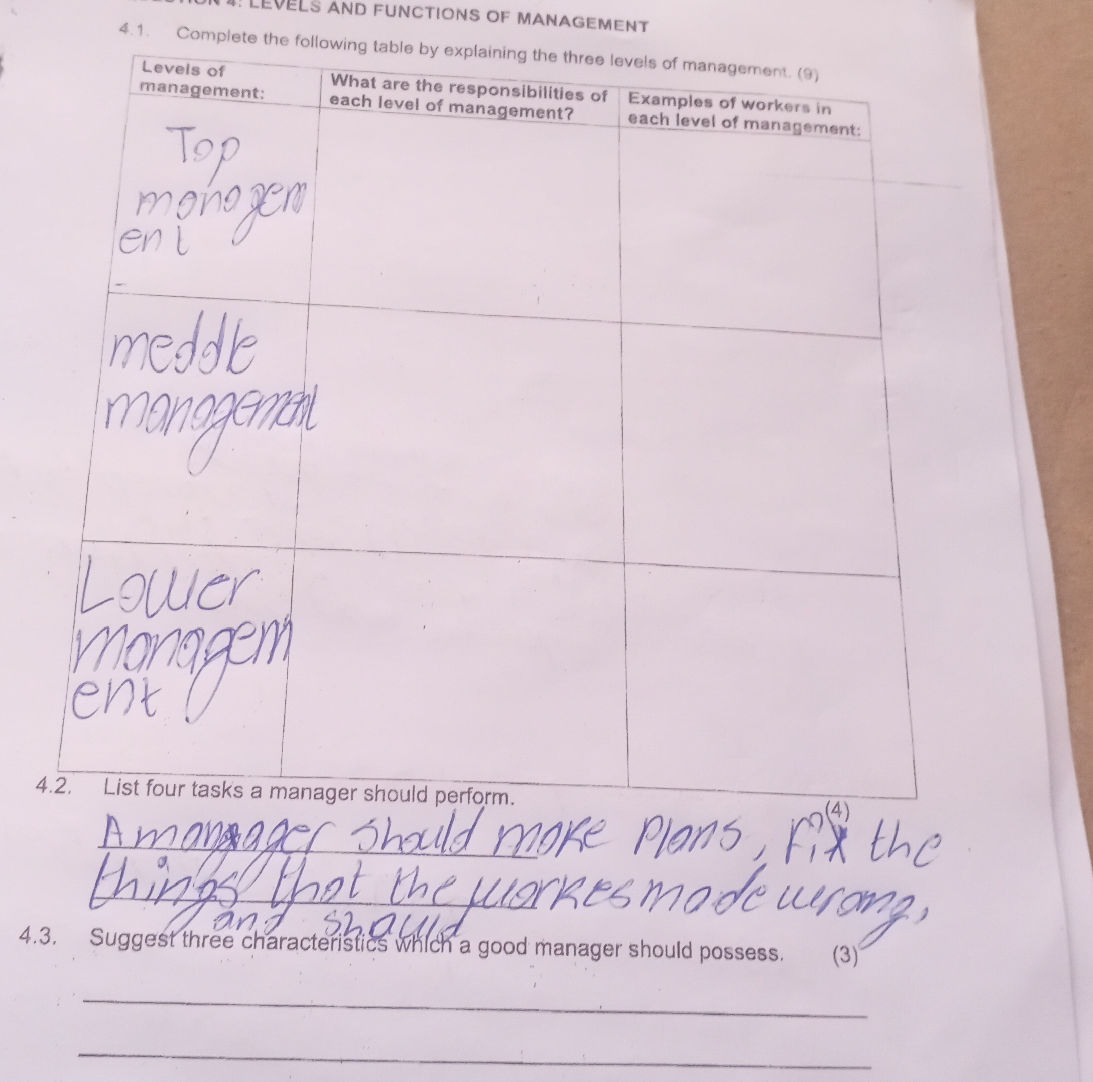 4: LEVELS AND FUNCTIONS OF MANAGEMENT
4.1. Complete the following table by explaining the three levels of management. (9)
Levels of management:
What are the responsibilities of each level of management?
Examples of workers in each level of management:
Top
managem
ent
meddle
management
Lower
managem
ent
4.2. List four tasks a manager should perform. (4)
A manager should make Plans, Fix the
things that the workes made wrong,
and should
4.3. Suggest three characteristics which a good manager should possess. (3)